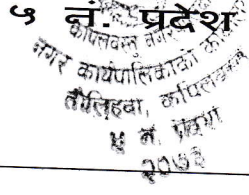 ५ नं. प्रदेश
कपिलवस्तु नगर
नगर कार्यपालिकाको
तौलिहवा, कपिलवस्तु
५ नं. प्रदेश
२०७३